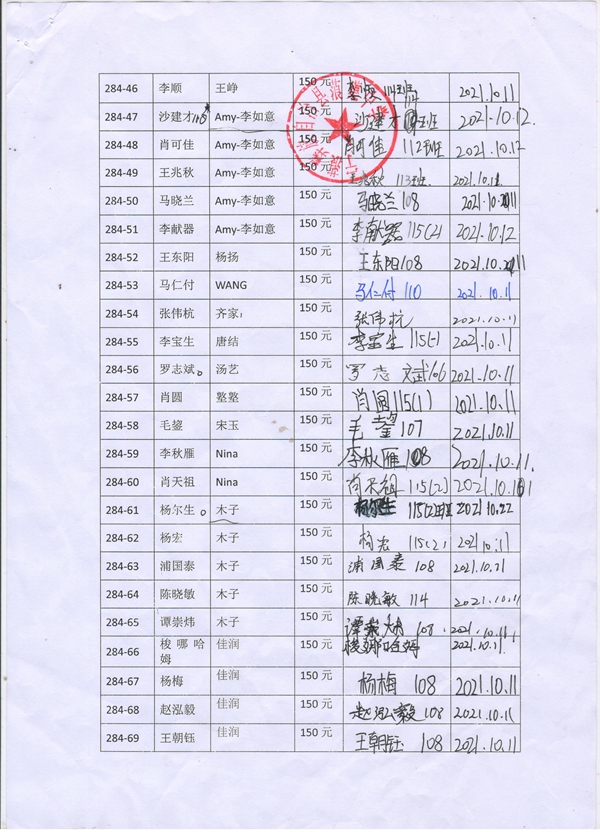 284-46 李顺 王峥 150 元 李顺 114班 2021.10.11
284-47 沙建才 Amy-李如意 150 元 沙建才 班 2021.10.12
284-48 肖可佳 Amy-李如意 150 元 肖可佳 112班 2021.10.12
284-49 王兆秋 Amy-李如意 150 元 王兆秋 113班 2021.10.11
284-50 马晓兰 Amy-李如意 150 元 马晓兰 108 2021.10.11
284-51 李献器 Amy-李如意 150 元 李献器 115(2) 2021.10.12
284-52 王东阳 杨扬 150 元 王东阳 108 2021.10.11
284-53 马仁付 WANG 150 元 马仁付 110 2021.10.11
284-54 张伟杭 齐家 150 元 张伟杭 2021.10.11
284-55 李宝生 唐结 150 元 李宝生 2021.10.11
284-56 罗志斌 汤艺 150 元 罗志斌 106 2021.10.11
284-57 肖圆 整整 150 元 肖圆 115(1) 2021.10.11
284-58 毛鋆 宋玉 150 元 毛鋆 107 2021.10.11
284-59 李秋雁 Nina 150 元 李秋雁 108 2021.10.11.
284-60 肖天祖 Nina 150 元 肖天祖 115(2) 2021.10.11
284-61 杨尔生 木子 150 元 杨尔生 115(2)班 2021.10.22
284-62 杨宏 木子 150 元 杨宏 115(2) 2021.10.11
284-63 浦国泰 木子 150 元 浦国泰 108 2021.10.11
284-64 陈晓敏 木子 150 元 陈晓敏 114 2021.10.11
284-65 谭崇炜 木子 150 元 谭崇炜 108 2021.10.11
284-66 梭哪哈姆 佳润 150 元 梭娜哈姆 2021.10.11
284-67 杨梅 佳润 150 元 杨梅 108 2021.10.11
284-68 赵泓毅 佳润 150 元 赵泓毅 108 2021.10.11
284-69 王朝钰 佳润 150 元 王朝钰 108 2021.10.11